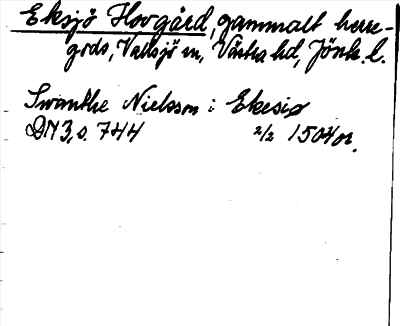 Eksjö Hovgård, gammalt herre-
gods, Vallsjö sn, Västra hd, Jönk. l.
Swanthe Nielsson i Ekesiø
DN 3, s. 744 2/2 1504 or.